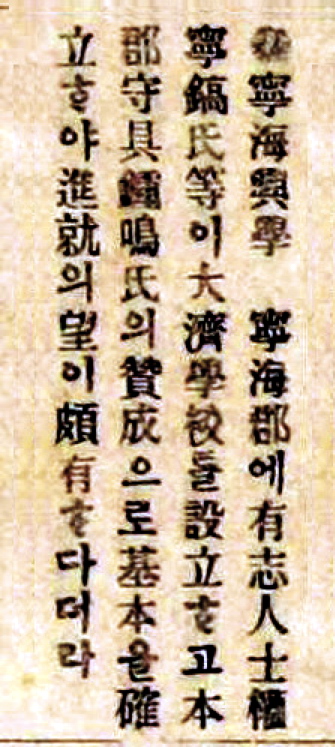 寧海興學 寧海郡에有志人士權
寧鎬氏等이大濟學校를設立ᄒᆞ고本
郡守具鳴氏의賛成으로基本을確
立ᄒᆞ야進就의望이頗有ᄒᆞ다더라